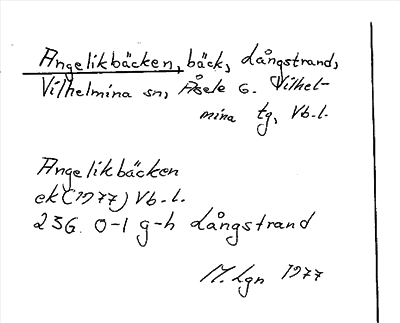 Angelikbäcken, bäck, Långstrand,
Vilhelmina sn, Åsele G. Vilhel-
mina tg, Vb.l.
Angelikbäcken
ek (1977) Vb.l.
23G. 0-1 g-h Långstrand
M. Lgn 1977